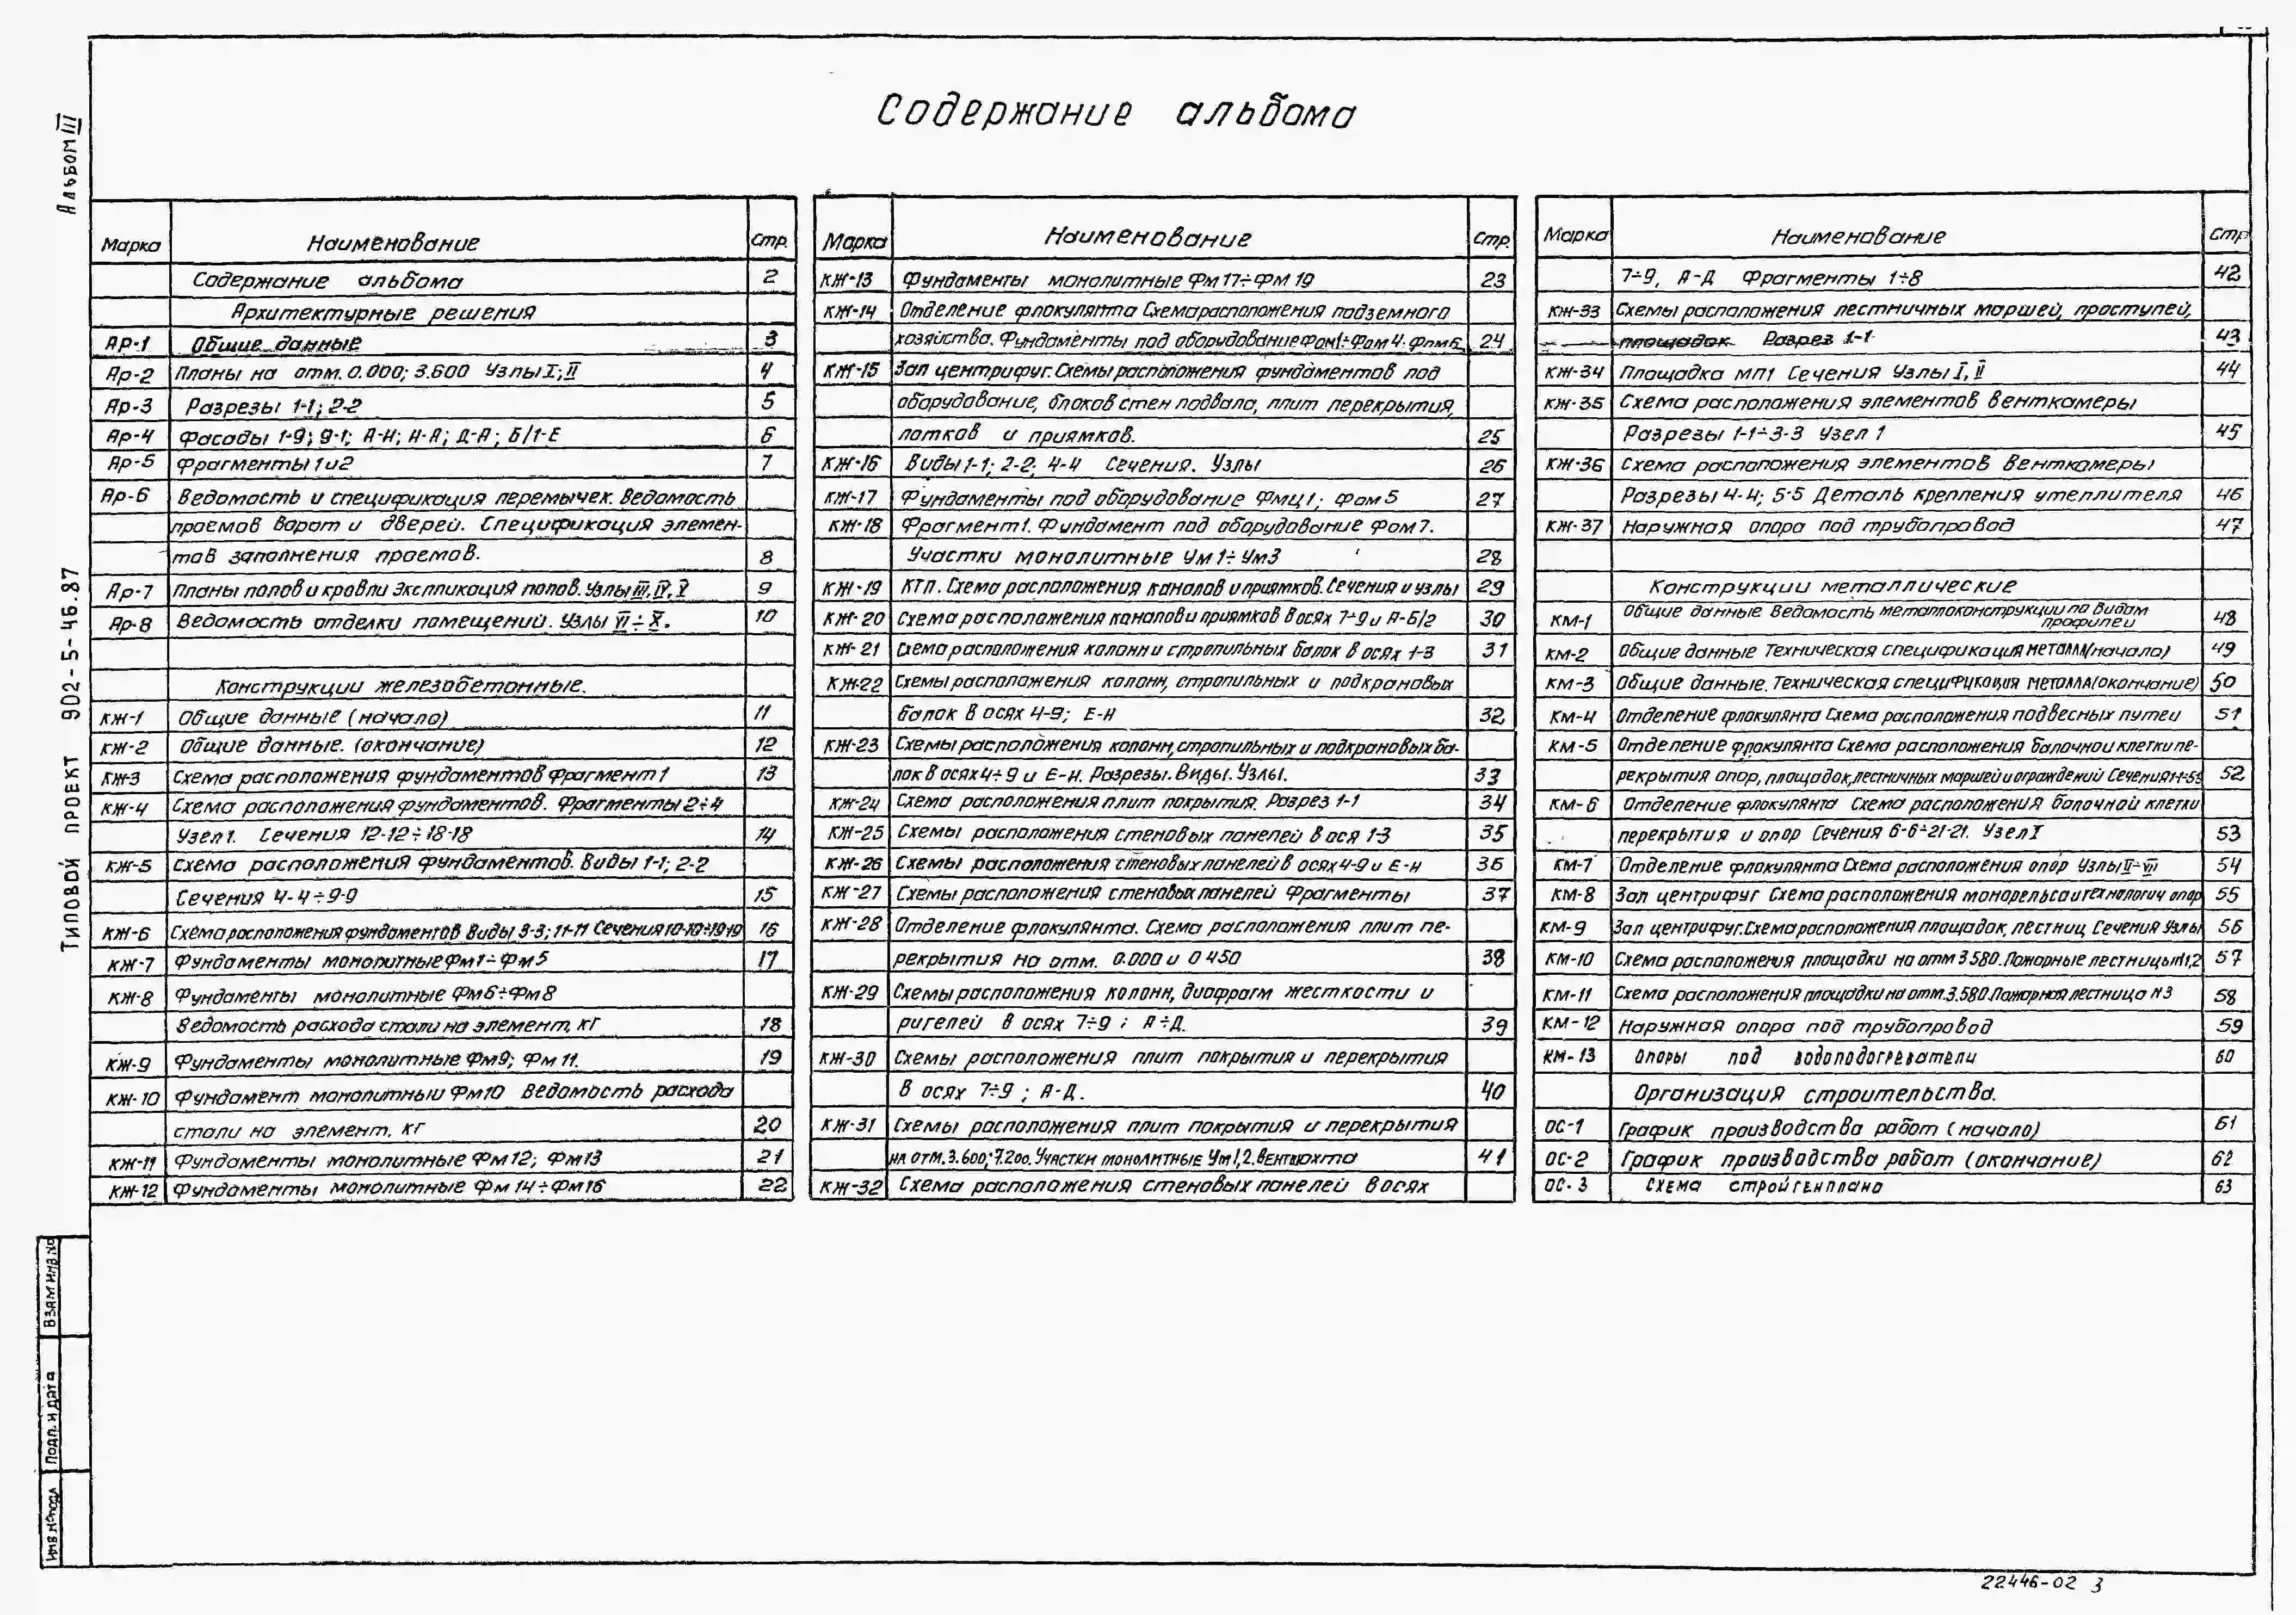 Альбом III
Содержание альбома
Марка Наименование Стр.
Содержание альбома 2
Архитектурные решения
Яр-1 Общие данные 3
Яр-2 Планы на отм. 0.000; 3.600 Узлы I; II 4
Яр-3 Разрезы 1-1; 2-2 5
Яр-4 Фасады 1-9; 9-1; А-Н; Н-А; Д-А; Б/1-Е 6
Яр-5 Фрагменты 1 и 2 7
Яр-6 Ведомость и спецификация перемычек. Ведомость
проемов ворот и дверей. Спецификация элемен-
тов заполнения проемов. 8
Яр-7 Планы полов и кровли Экспликация полов. Узлы III, IV, V 9
Яр-8 Ведомость отделки помещений. Узлы VI÷X. 10
Конструкции железобетонные.
КЖ-1 Общие данные (начало) 11
КЖ-2 Общие данные. (окончание) 12
КЖ-3 Схема расположения фундаментов Фрагмент 1 13
КЖ-4 Схема расположения фундаментов. Фрагменты 2÷4
Узел 1. Сечения 12-12÷18-18 14
КЖ-5 Схема расположения фундаментов. Виды 1-1; 2-2
Сечения 4-4÷9-9 15
КЖ-6 Схема расположения фундаментов Виды 3-3; 11-11 Сечения 10-10÷19-19 16
КЖ-7 Фундаменты монолитные Фм1÷Фм5 17
КЖ-8 Фундаменты монолитные Фм6÷Фм8
Ведомость расхода стали на элемент, кг 18
КЖ-9 Фундаменты монолитные Фм9; Фм 11. 19
КЖ-10 Фундамент монолитный Фм10 Ведомость расхода
стали на элемент. кг 20
КЖ-11 Фундаменты монолитные Фм12; Фм13 21
КЖ-12 Фундаменты монолитные Фм 14÷Фм16 22
Марка Наименование Стр.
КЖ-13 Фундаменты монолитные Фм 17÷Фм 19 23
КЖ-14 Отделение флокулянта Схема расположения подземного
хозяйства. Фундаменты под оборудование Фом1÷Фом 4; Фом6 24
КЖ-15 Зал центрифуг. Схемы расположения фундаментов под
оборудование, блоков стен подвала, плит перекрытия,
лотков и приямков. 25
КЖ-16 Виды 1-1; 2-2; 4-4 Сечения. Узлы 26
КЖ-17 Фундаменты под оборудование Фмц1; Фом5 27
КЖ-18 Фрагмент 1. Фундамент под оборудование Фом 7.
Участки монолитные Ум 1÷Ум3 28
КЖ-19 КТП. Схема расположения каналов и приямков. Сечения и узлы 29
КЖ-20 Схема расположения каналов и приямков в осях 7÷9 и А-Б/2 30
КЖ-21 Схема расположения колонн и стропильных балок в осях 1-3 31
КЖ-22 Схемы расположения колонн, стропильных и подкрановых
балок в осях 4-9; Е-Н 32
КЖ-23 Схемы расположения колонн, стропильных и подкрановых ба-
лок в осях 4÷9 и Е-Н. Разрезы. Виды. Узлы. 33
КЖ-24 Схема расположения плит покрытия. Разрез 1-1 34
КЖ-25 Схемы расположения стеновых панелей в ося 1-3 35
КЖ-26 Схемы расположения стеновых панелей в осях 4-9 и Е-Н 36
КЖ-27 Схемы расположения стеновых панелей Фрагменты 37
КЖ-28 Отделение флокулянта. Схема расположения плит пе-
рекрытия на отм. 0.000 и 0 450 38
КЖ-29 Схемы расположения колонн, диафрагм жесткости и
ригелей в осях 7÷9 ; А÷Д. 39
КЖ-30 Схемы расположения плит покрытия и перекрытия
в осях 7÷9 ; А-Д. 40
КЖ-31 Схемы расположения плит покрытия и перекрытия
на отм. 3.600; 7.200. Участки монолитные Ум 1,2. Вентшахта 41
КЖ-32 Схема расположения стеновых панелей в осях
Марка Наименование Стр
7÷9, А-Д Фрагменты 1÷8 42
КЖ-33 Схемы расположения лестничных маршей, проступей,
площадок Разрез 1-1 43
КЖ-34 Площадка МП1 Сечения Узлы I, II 44
КЖ-35 Схема расположения элементов венткамеры
Разрезы 1-1÷3-3 Узел 1 45
КЖ-36 Схема расположения элементов венткамеры
Разрезы 4-4; 5-5 Деталь крепления утеплителя 46
КЖ-37 Наружная опора под трубопровод 47
Конструкции металлические
КМ-1 Общие данные Ведомость металлоконструкции по видам
профилей 48
КМ-2 Общие данные Техническая спецификация металла (начало) 49
КМ-3 Общие данные. Техническая спецификация металла (окончание) 50
КМ-4 Отделение флокулянта Схема расположения подвесных путей 51
КМ-5 Отделение флокулянта Схема расположения балочной клетки пе-
рекрытия опор, площадок, лестничных маршей и ограждений Сечения 1-1÷5-5 52
КМ-6 Отделение флокулянта Схема расположения балочной клетки
перекрытия и опор Сечения 6-6÷21-21. Узел I 53
КМ-7 Отделение флокулянта Схема расположения опор Узлы II÷VII 54
КМ-8 Зал центрифуг Схема расположения монорельса и технологич опор 55
КМ-9 Зал центрифуг. Схема расположения площадок, лестниц Сечения Узлы 56
КМ-10 Схема расположения площадки на отм 3 580. Пожарные лестницы N1,2 57
КМ-11 Схема расположения площадки на отм. 3.580. Пожарная лестница N3 58
КМ-12 Наружная опора под трубопровод 59
КМ-13 Опоры под водоподогреватели 60
Организация строительства.
ОС-1 График производства работ (начало) 61
ОС-2 График производства работ (окончание) 62
ОС-3 Схема стройгенплана 63
Типовой проект 902-5-46.87
Взам инв. №
Подп. и дата
Инв № подл
22446-02 3